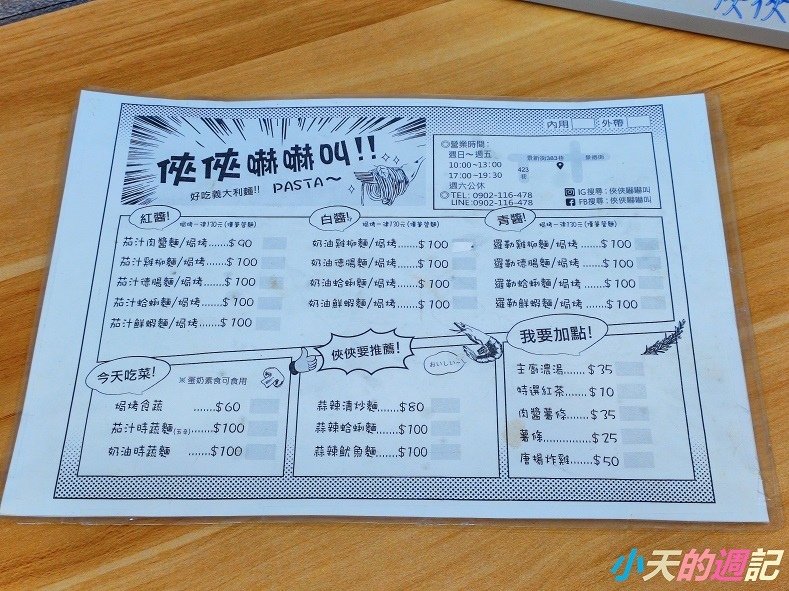 俠俠嚇嚇叫!!
好吃義大利麵!! PASTA～
內用 外帶
◎營業時間:
週日～週五
10:00~13:00
17:00~19:30
週六公休
◎TEL: 0902-116-478
LINE:0902-116-478
景新街383巷
景德街
423巷
IG搜尋:俠俠嚇嚇叫
FB搜尋:俠俠嚇嚇叫
紅醬!
焗烤一律130元(僅筆管麵)
茄汁肉醬麵/焗烤.....$90
茄汁雞柳麵/焗烤......$100
茄汁德腸麵/焗烤......$100
茄汁蛤蜊麵/焗烤......$100
茄汁鮮蝦麵/焗烤......$100
白醬!
焗烤一律130元(僅筆管麵)
奶油雞柳麵/焗烤......$100
奶油德腸麵/焗烤......$100
奶油蛤蜊麵/焗烤......$100
奶油鮮蝦麵/焗烤......$100
青醬!
焗烤一律130元(僅筆管麵)
羅勒雞柳麵/焗烤......$100
羅勒德腸麵/焗烤......$100
羅勒蛤蜊麵/焗烤......$100
羅勒鮮蝦麵/焗烤......$100
今天吃菜!
※蛋奶素食可食用
焗烤食蔬 ......$60
茄汁時蔬麵(五辛)......$100
奶油時蔬麵 ......$100
俠俠要推薦!
おいしい~
蒜辣清炒麵......$80
蒜辣蛤蜊麵......$100
蒜辣魷魚麵......$100
我要加點!
主廚濃湯......$35
特選紅茶......$10
肉醬薯條......$35
薯條......$25
唐揚炸雞......$50
小天的週記